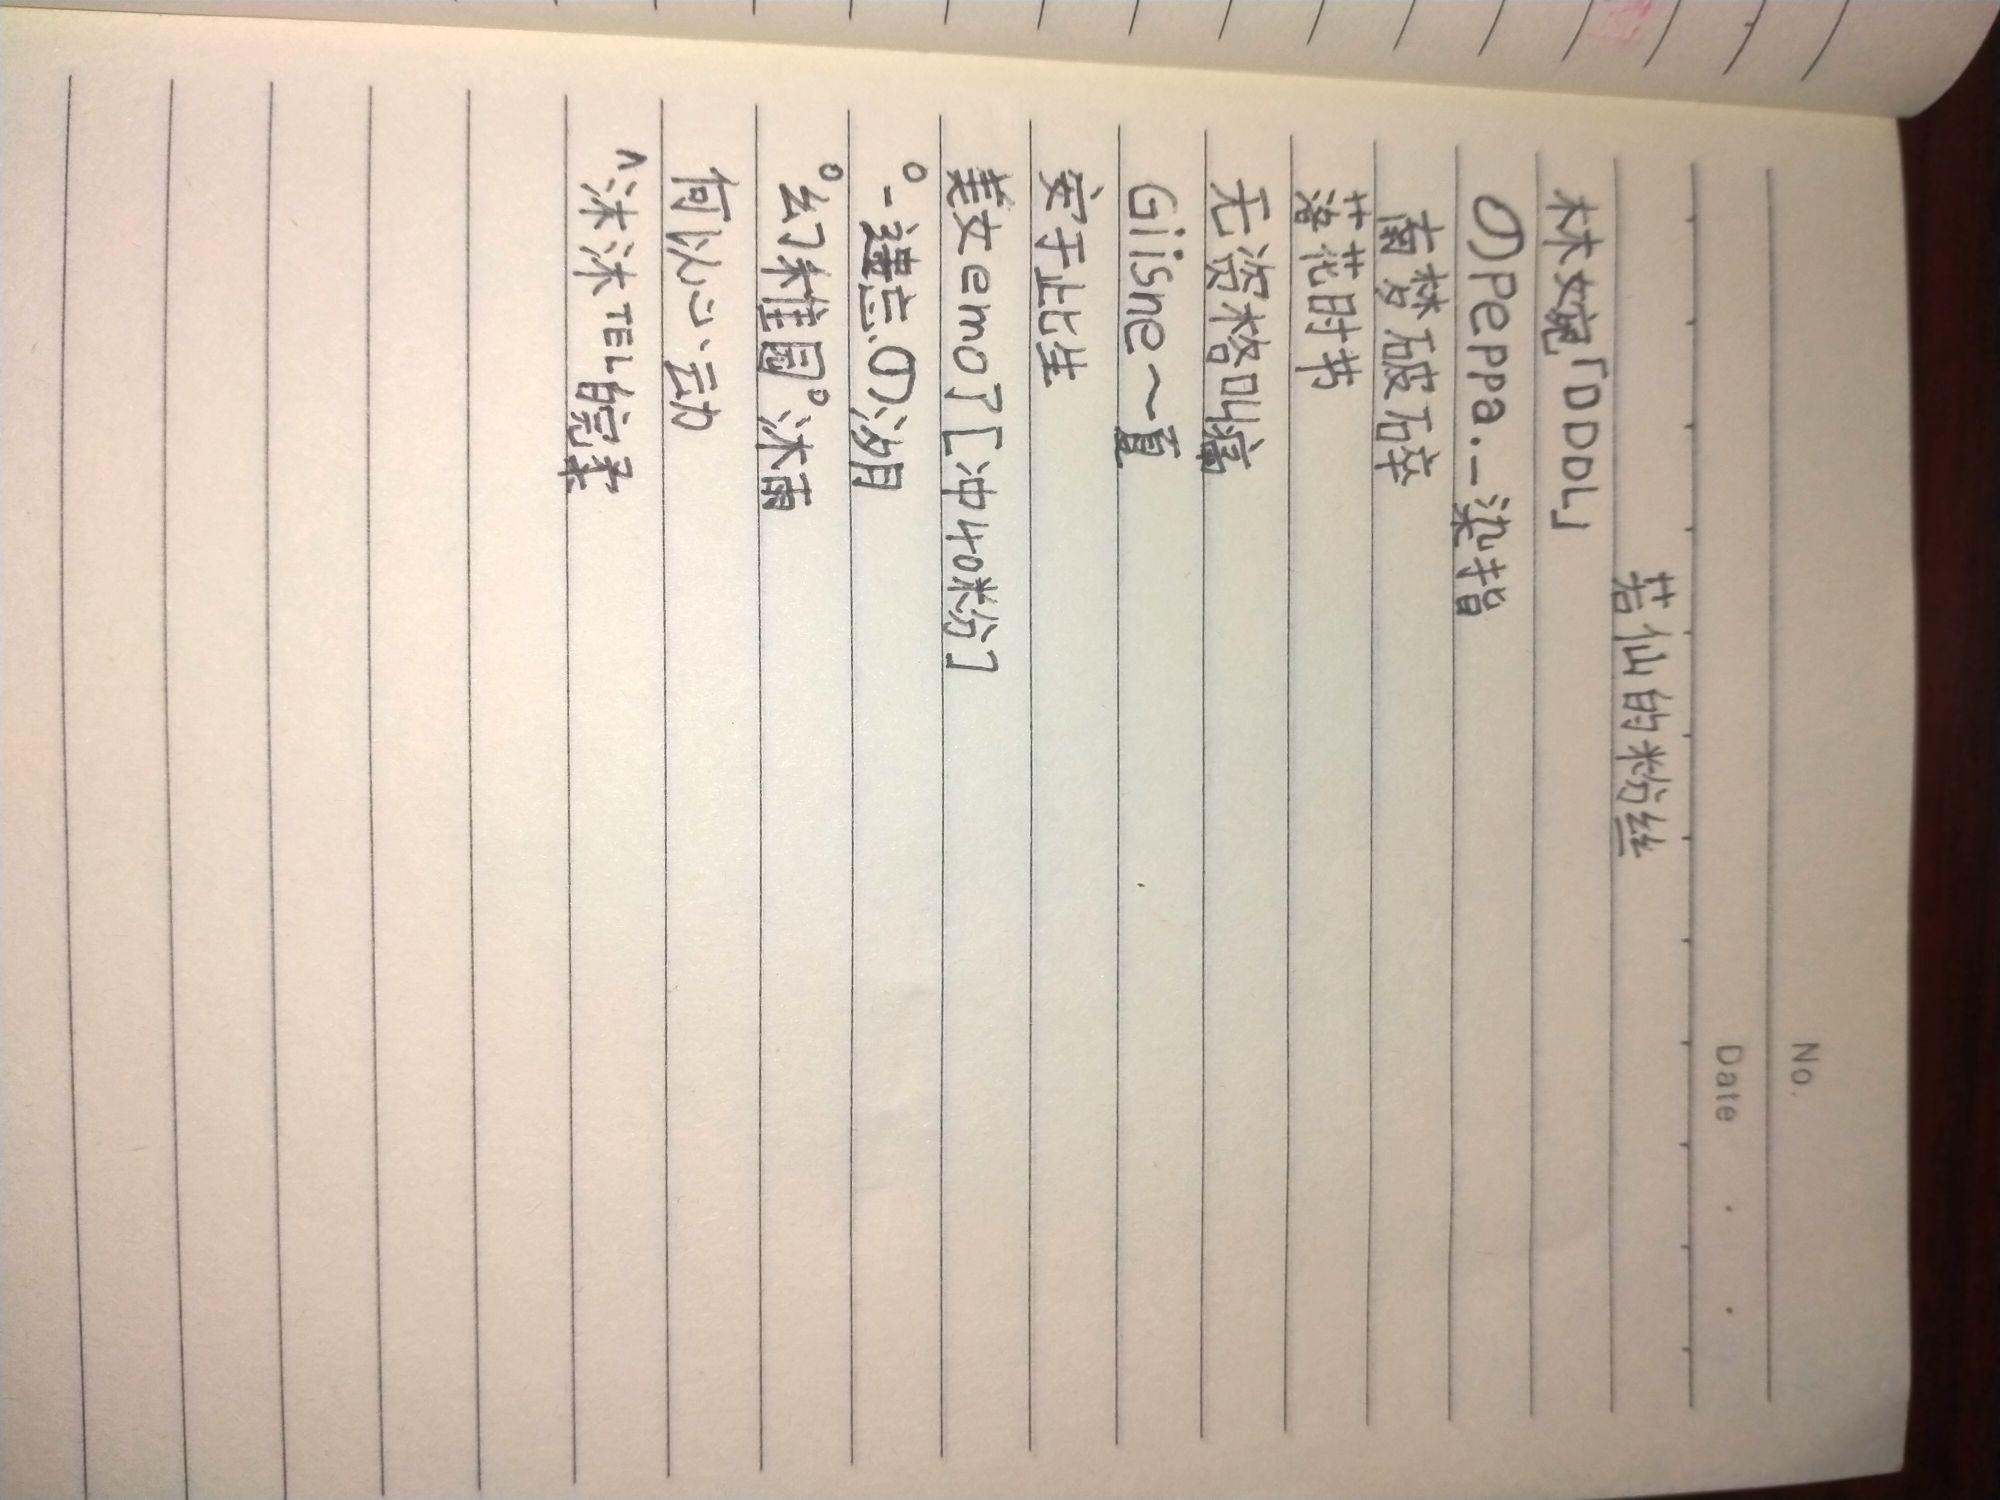 No.
Date
若仙的粉丝
林婉「DDDL」
のPeppa.—染指
南梦破碎
落花时节
无资格叫痛
Giisne～夏
安于此生
美女emo了[冲40粉]
の汐月
°幻来惟园°沐雨
何以心动
^沫沫TEL皖柔